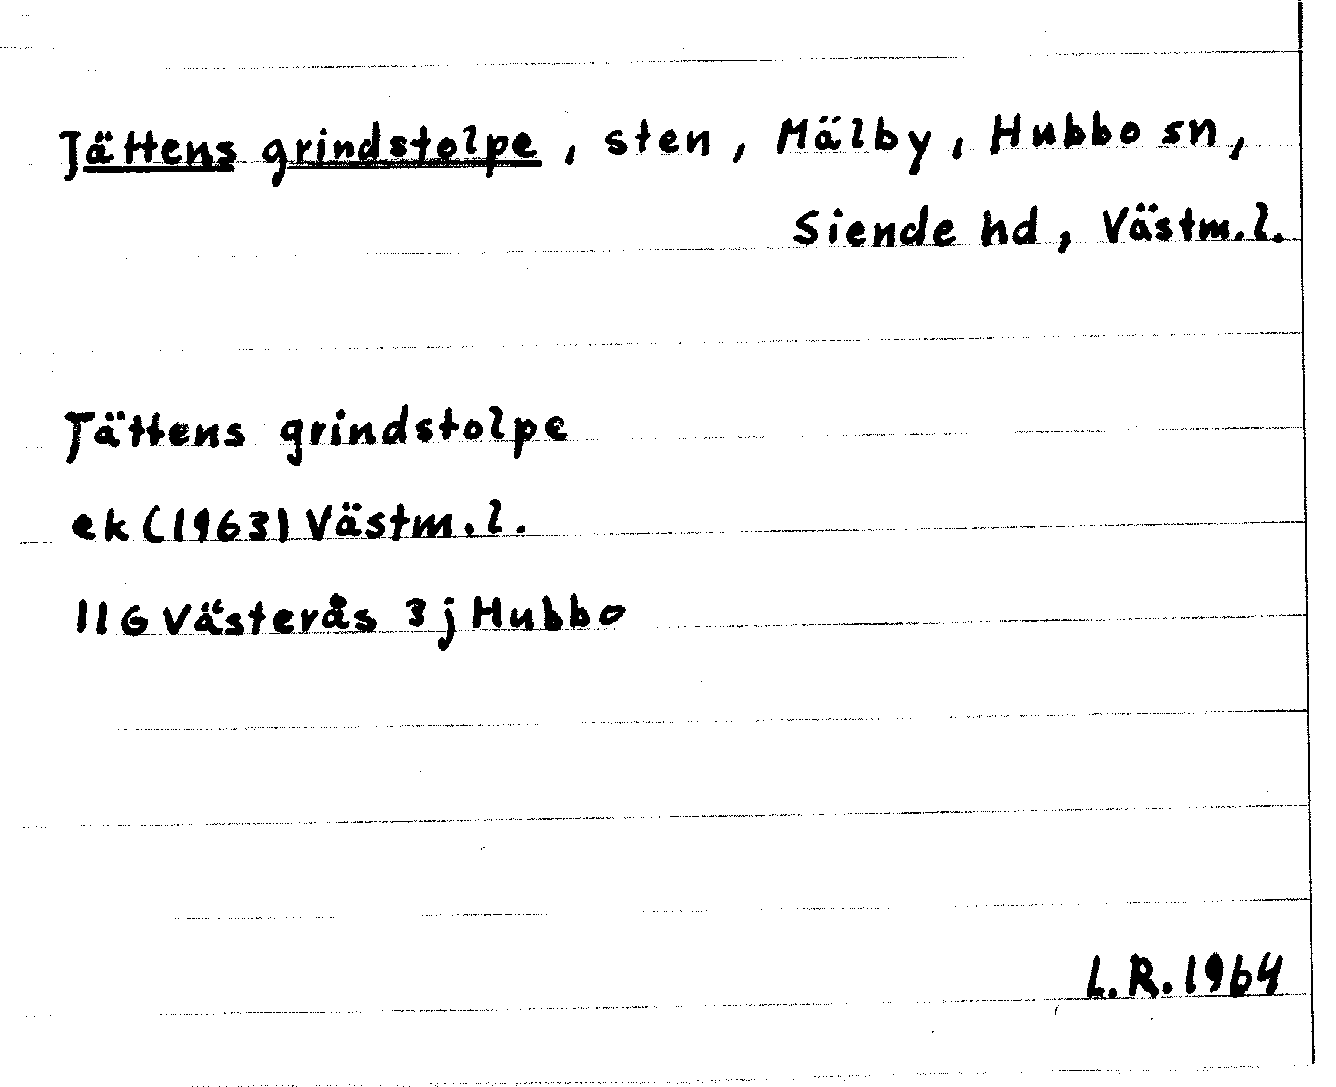 Jättens grindstolpe, sten, Mälby, Hubbo sn,
Siende hd, Västm.l.
Jättens grindstolpe
ek (1963) Västm.l.
11G Västerås 3j Hubbo
L.R. 1964